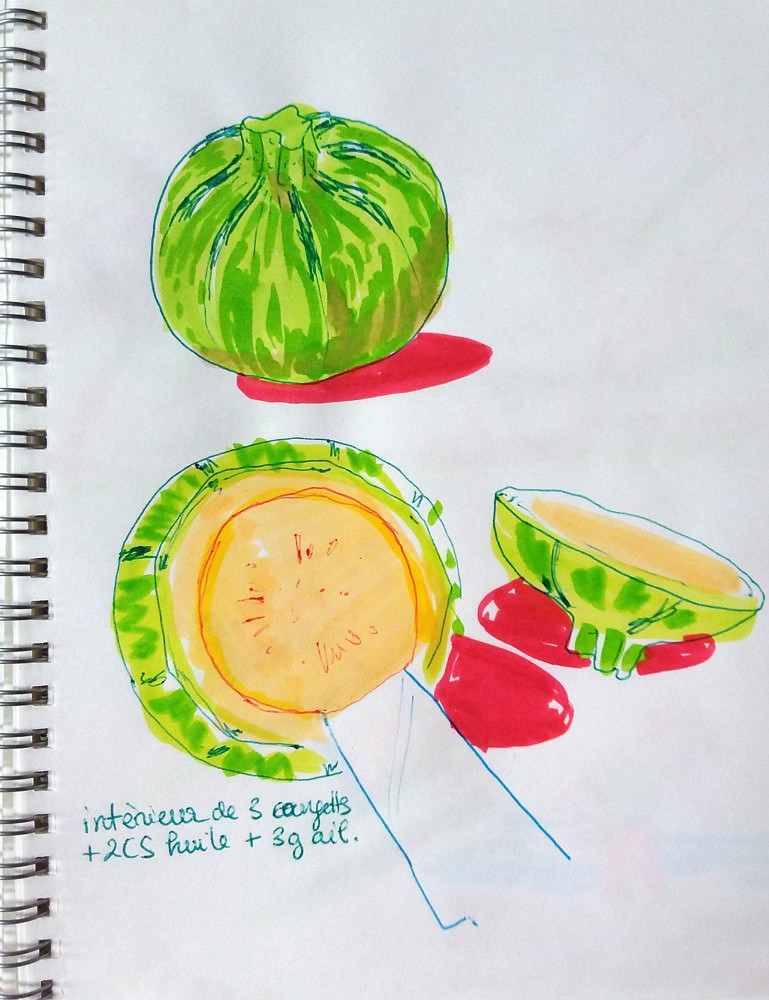 intèrieur de 3 courgetts
+2CS huile + 3g ail.